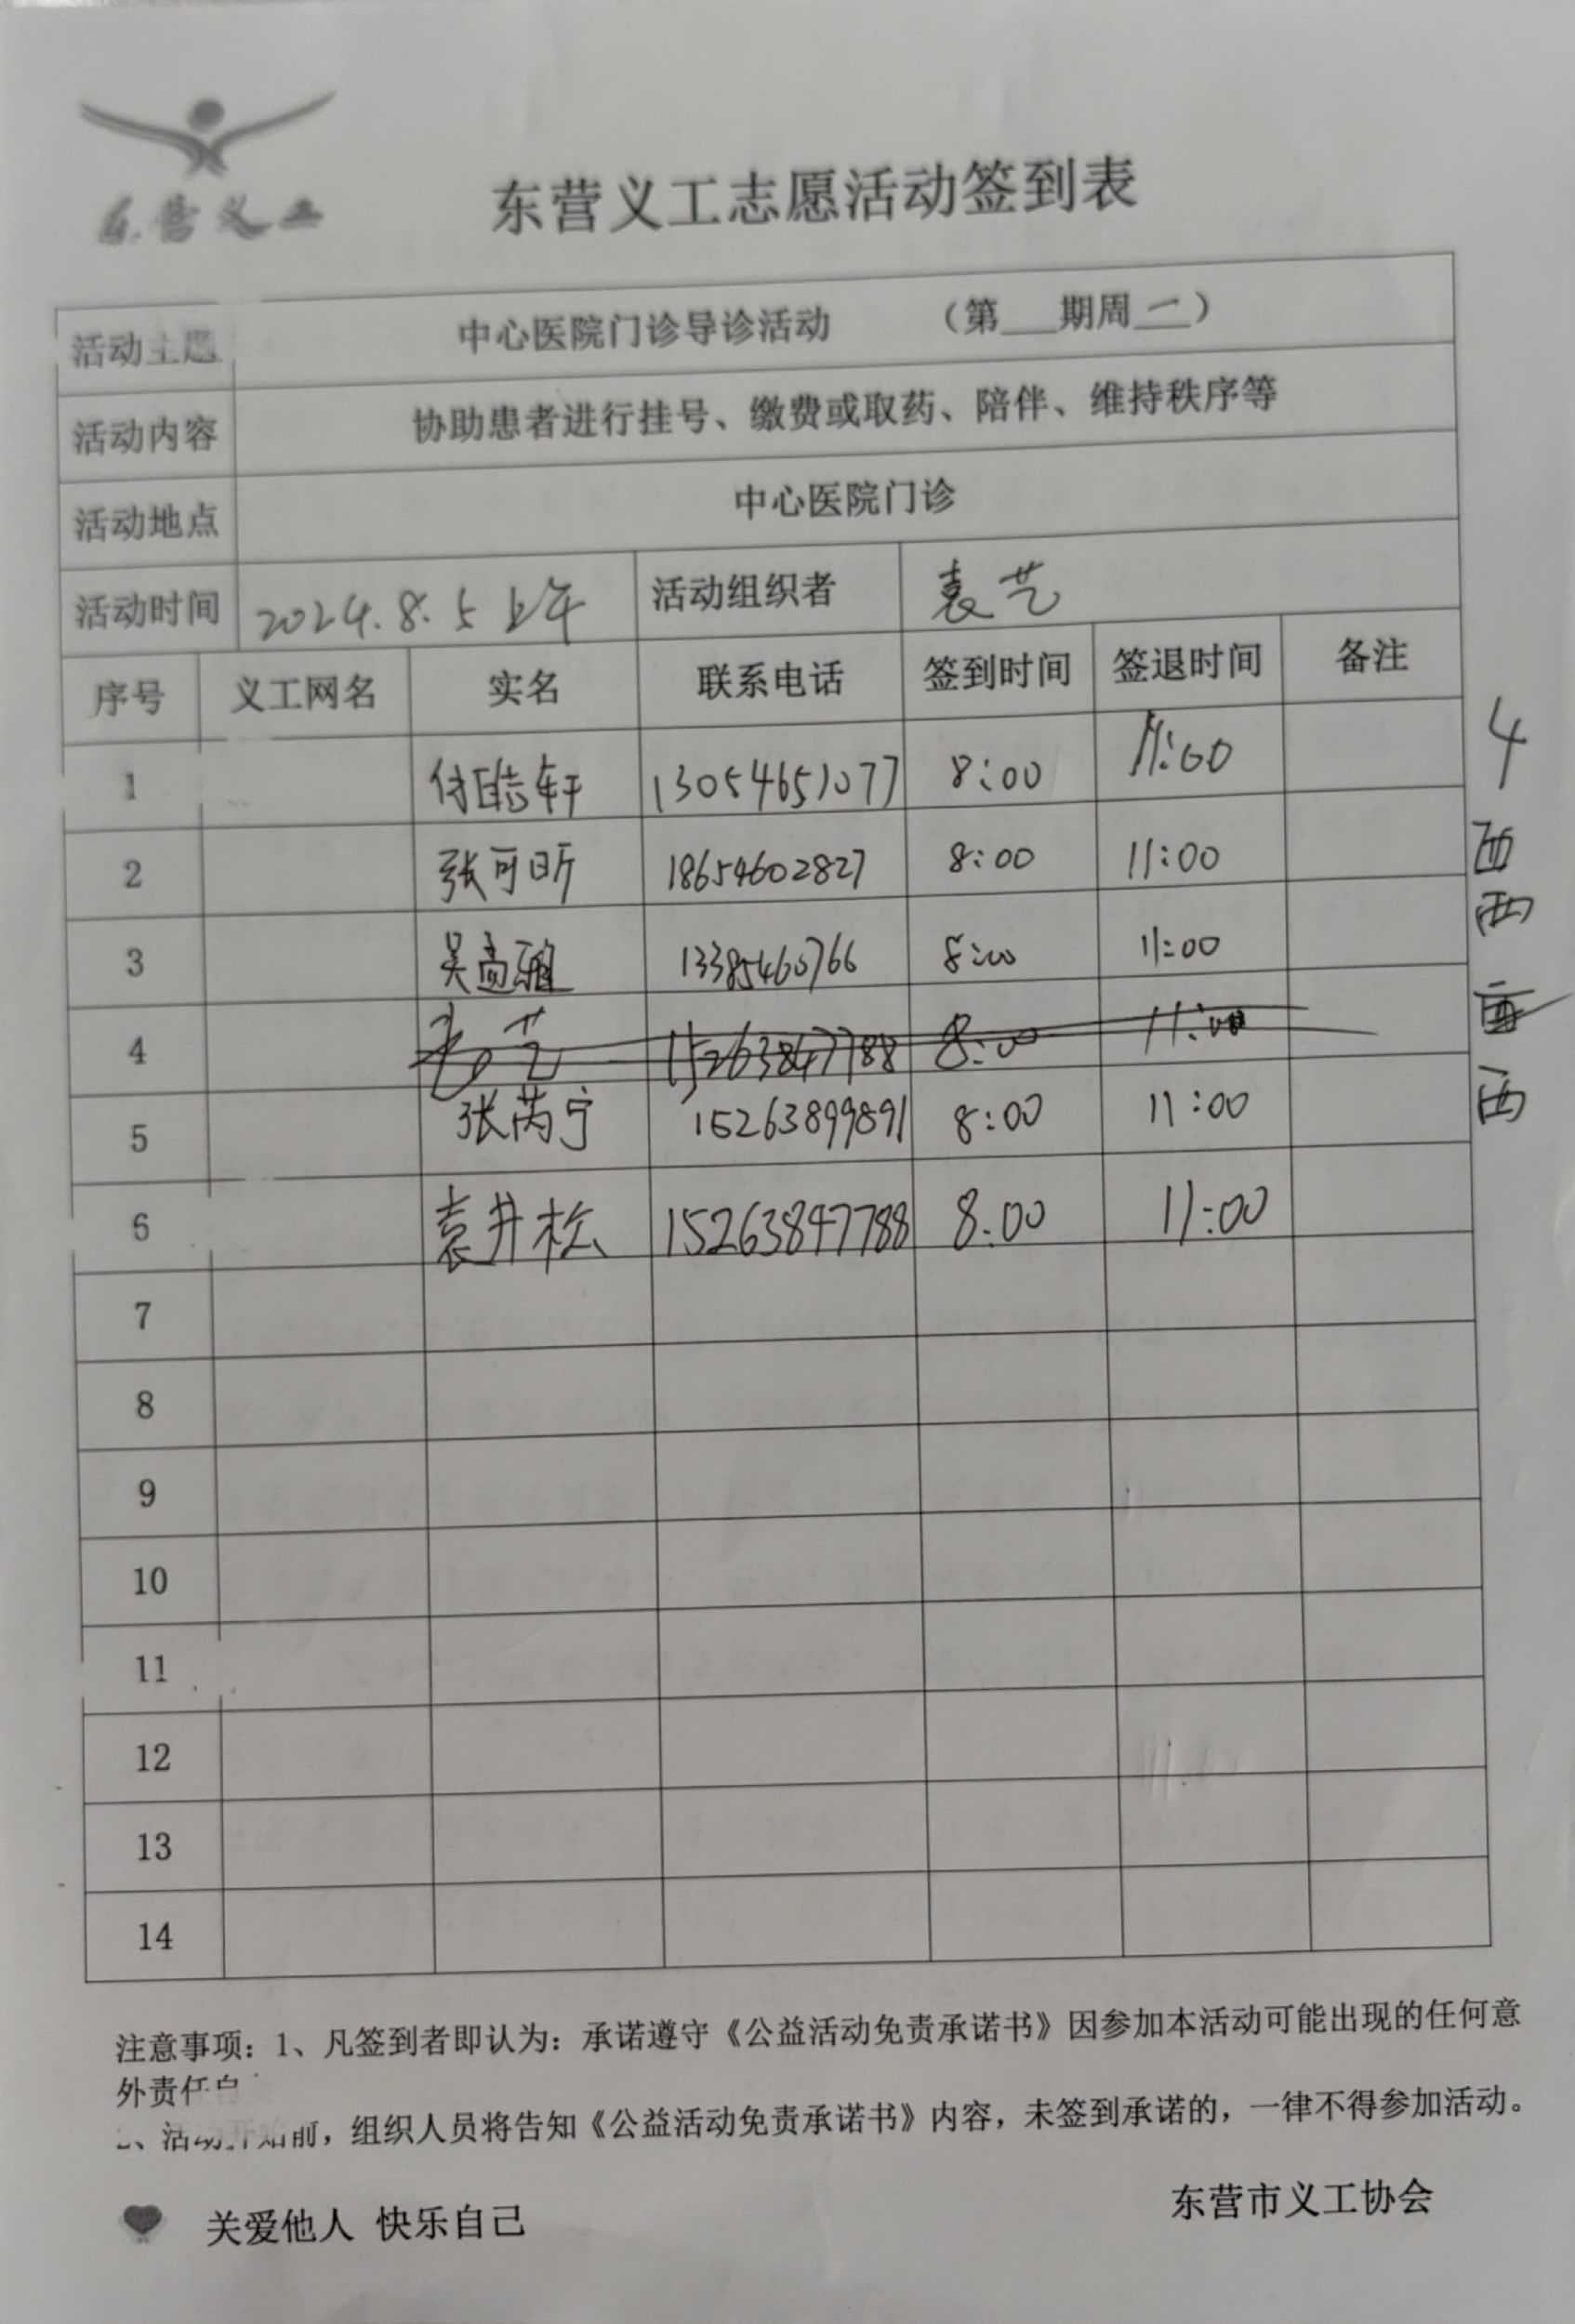 东营义工
东营义工志愿活动签到表
活动主题 中心医院门诊导诊活动 （第___期周一）
活动内容 协助患者进行挂号、缴费或取药、陪伴、维持秩序等
活动地点 中心医院门诊
活动时间 2024.8.5上午 活动组织者 袁艺
序号 义工网名 实名 联系电话 签到时间 签退时间 备注
4
1 付皓轩 13054651077 8:00 11:00
2 张可昕 18654602827 8:00 11:00 西
3 吴 雅 8:00 11:00 西
4 袁艺 15263847788 8:00 11:00 西
5 张芮宁 15263899891 8:00 11:00 西
6 袁井松 15263847788 8:00 11:00
7
8
9
10
11
12
13
14
注意事项：1、凡签到者即认为：承诺遵守《公益活动免责承诺书》因参加本活动可能出现的任何意
外责任自
2、活动开始前，组织人员将告知《公益活动免责承诺书》内容，未签到承诺的，一律不得参加活动。
关爱他人 快乐自己
东营市义工协会